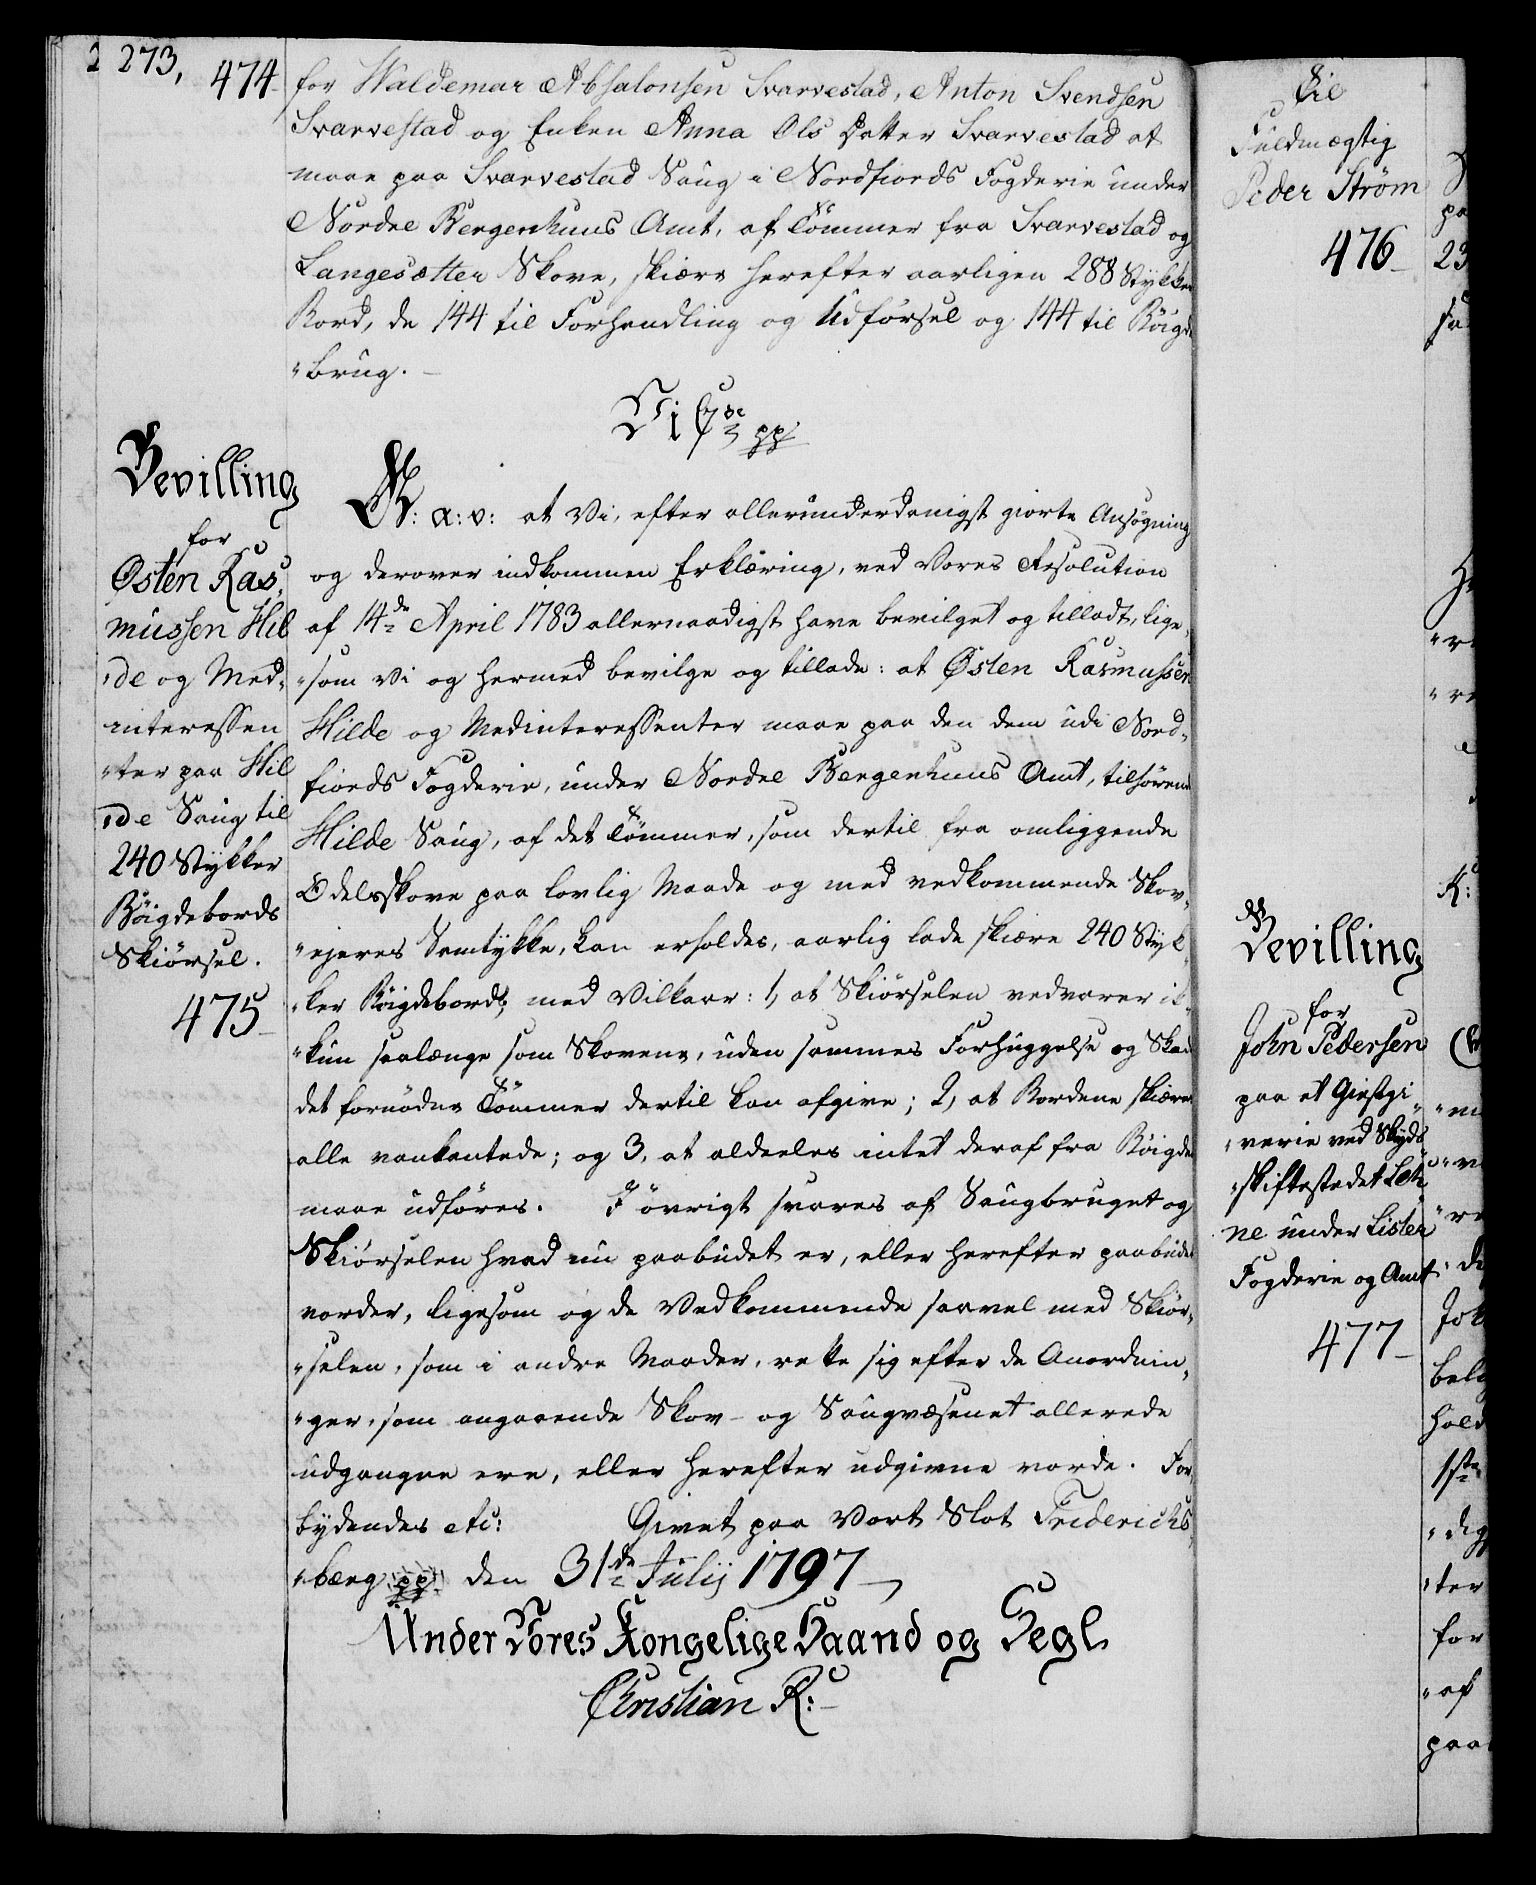 2 273,
474
for Waldemar Absalonsen Svarvestad, Anton Svendsen
Svarvestad og Enken Anna Ols Datter Svarvestad at
maae paa Svarvestad Saug i Nordfiords Fogderie under
Nordre Bergenhuus Amt, af Tömmer fra Svarvestad og
Langesætter Skove, skiære herefter aarligen 288 Stykker
Bord, de 144 til Forhandling og Udförsel og 144 til Böigde
"brug. –
Vi C 7de pp
Bevilling
for
Østen Ras,
mussen Hil
"de og Med,
interessen
"ter paa Hil
"de Saug til
240 Stykker
Böigdebords
Skiörsel.
475
G: A: V: at Vi, efter allerunderdanigst giorte Ansögning
og derover indkommen Erklæring, ved Vores Resolution
af 14de April 1783 allernaadigst have bevilget og tilladt, lige,
"som Vi og hermed bevilge og tillade: at Østen Rasmussen
Hilde og Medinteressenter maae paa den dem udi Nord,
fiords Fogderie, under Nordre Bergenhuus Amt, tilhörende
Hilde Saug, af det Tömmer, som dertil fra omliggende
Odelsskove paa lovlig Maade og med vedkommende Skov,
"ejeres Samtykke, kan erholdes, aarlig lade skiære 240 Styk,
"ker Böigdebord, med Vilkaar: 1, at Skiörselen vedvarer ik,
"kun saalænge som Skovene, uden sammes Forhuggelse og Skade
det fornödne Tömmer dertil kan afgive; 2, at Bordene skiæres
alle vankantede; og 3, at aldeeles intet deraf fra Böigden
maae udföres. I övrigt svares af Saugbruget og
Skiörselen hvad nu paabudet er, eller herefter paabudet
vorder, ligesom og de Vedkommende saavel med Skiör,
"selen, som i andre Maader, rette sig efter de Anordnin,
"ger, som angaaende Skov- og Saugvæsenet allerede
udgangne ere, eller herefter udgivne vorde. For,
bydendes etc: Givet paa Vort Slot Friderichs,
"berg pp den 31de Julij 1797
Under Vores Kongelige Haand og Segl.
Christian R:
til
Fuldmægtig
Peder Ström
476
Bevilling
for
John Pedersen
paa et Giestgi,
"verie ved Skyds
"skiftestedet Leh,
ne under Lister
Fogderie og Amt
477
pa
23
sa
"re
K:
"re
Jo
hold
1ste
"dig
"ter
for
"af
paa